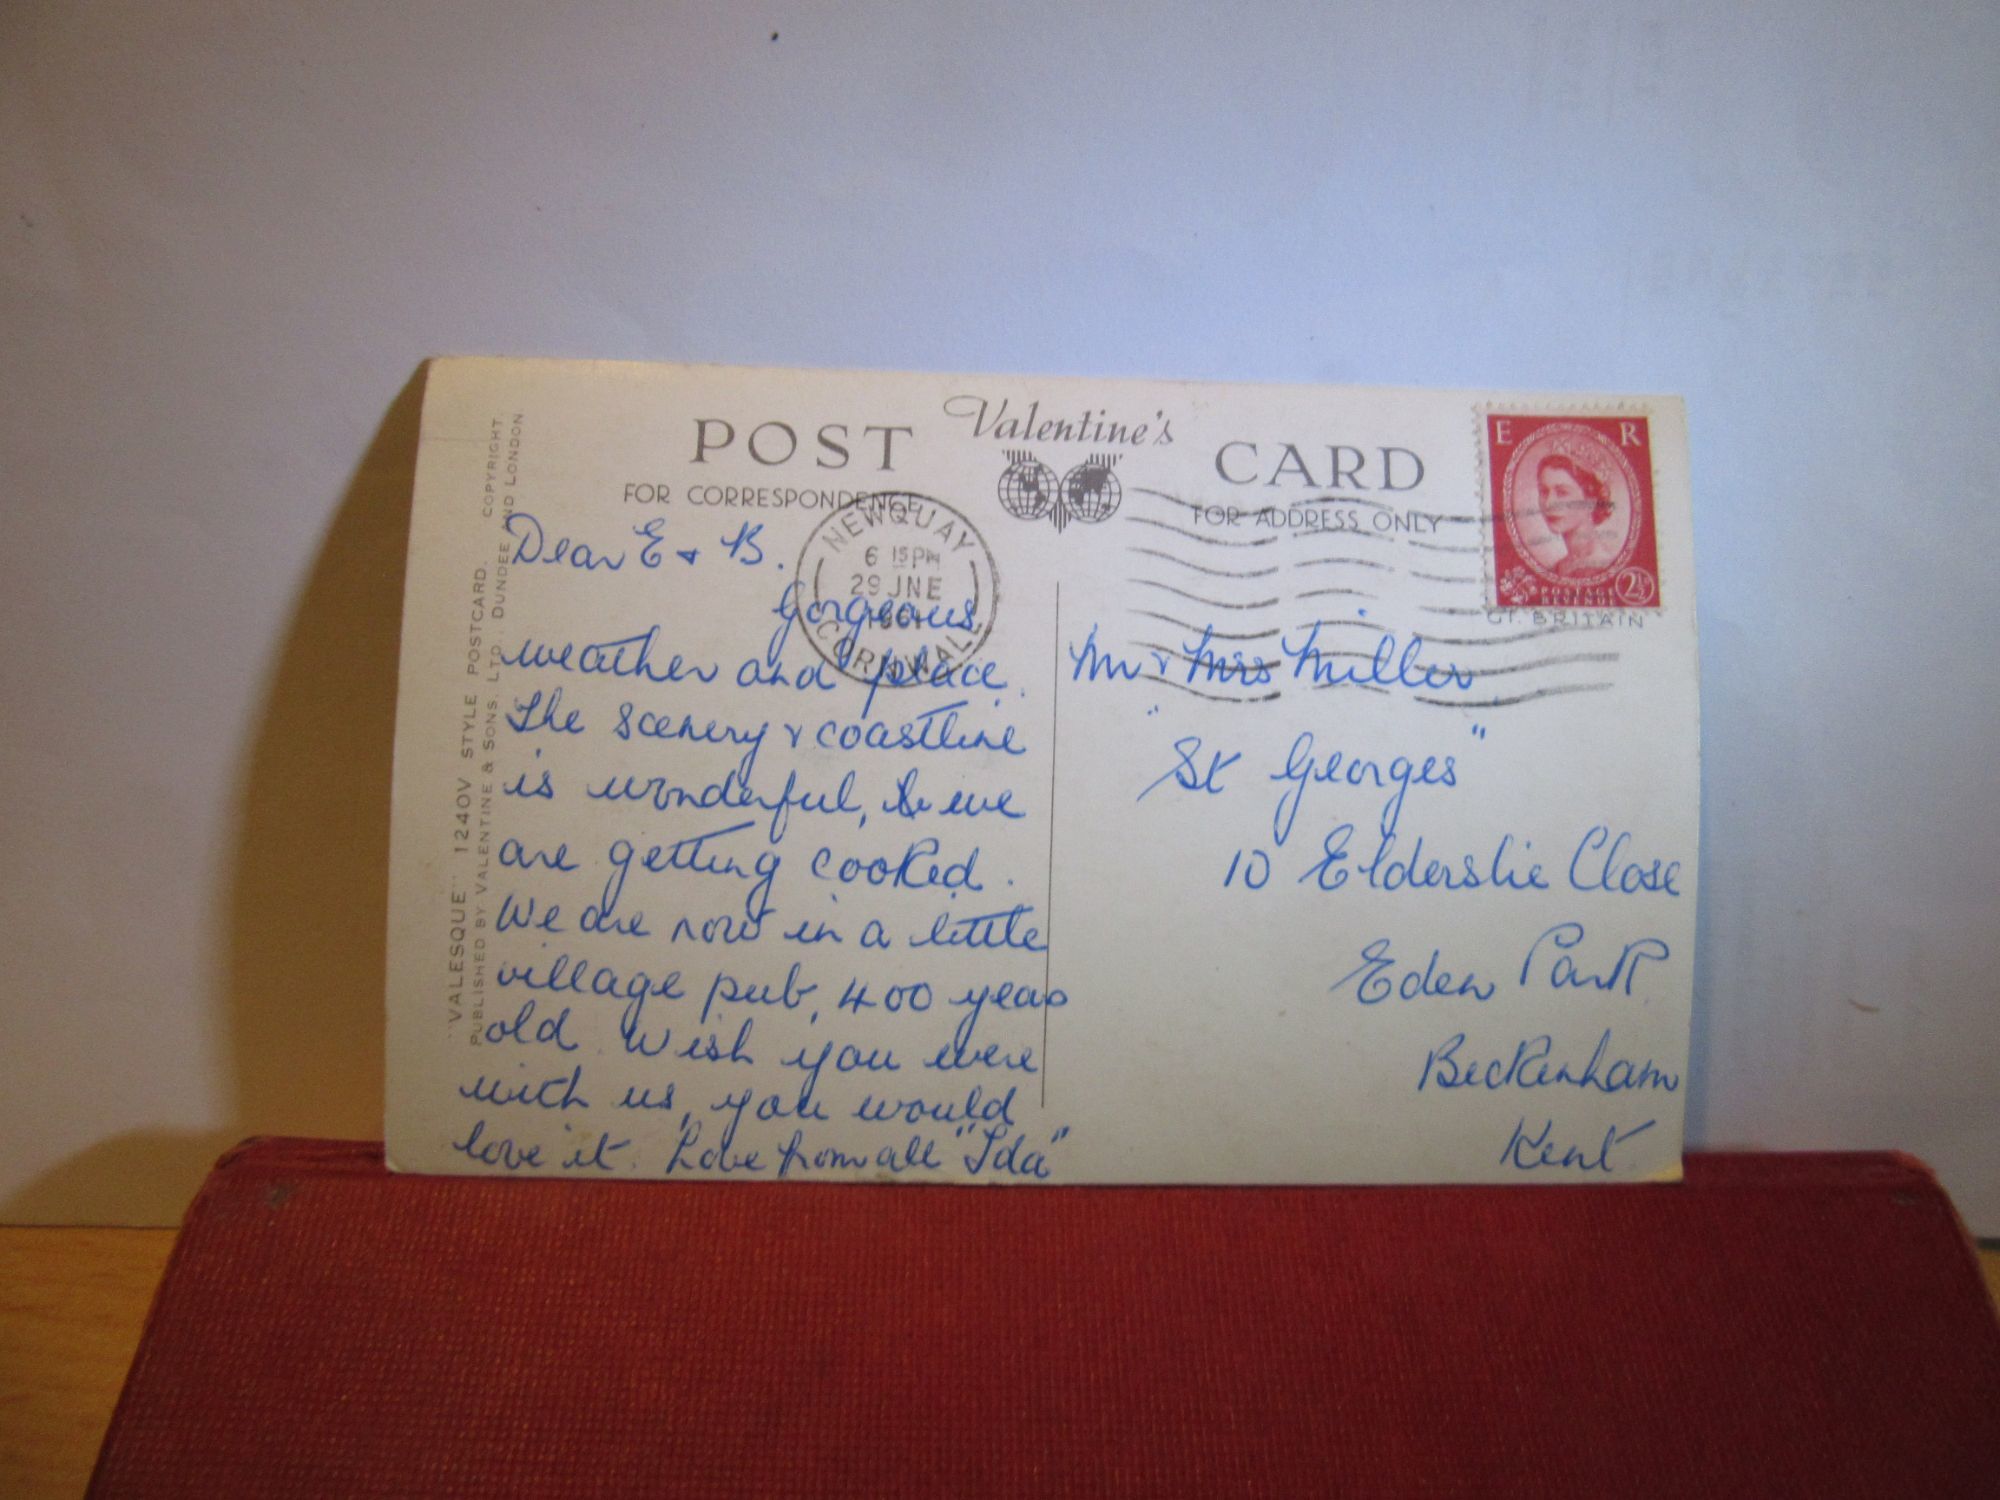 POST Valentine's CARD
FOR CORRESPONDENCE
FOR ADDRESS ONLY
NEWQUAY
6 15 PM
29 JNE
CORNWALL
E R
POSTAGE
REVENUE
2½
GT. BRITAIN
"VALESQUE" 1240V STYLE POSTCARD. COPYRIGHT.
PUBLISHED BY VALENTINE & SONS, LTD., DUNDEE AND LONDON
Dear E & B.
Gorgeous
weather and place.
The scenery & coastline
is wonderful, & we
are getting cooked.
We are now in a little
village pub, 400 years
old. Wish you were
with us, you would
love it. Love from all "Ida"
Mr & Mrs Miller
"St Georges"
10 Elderslie Close
Eden Park
Beckenham
Kent.